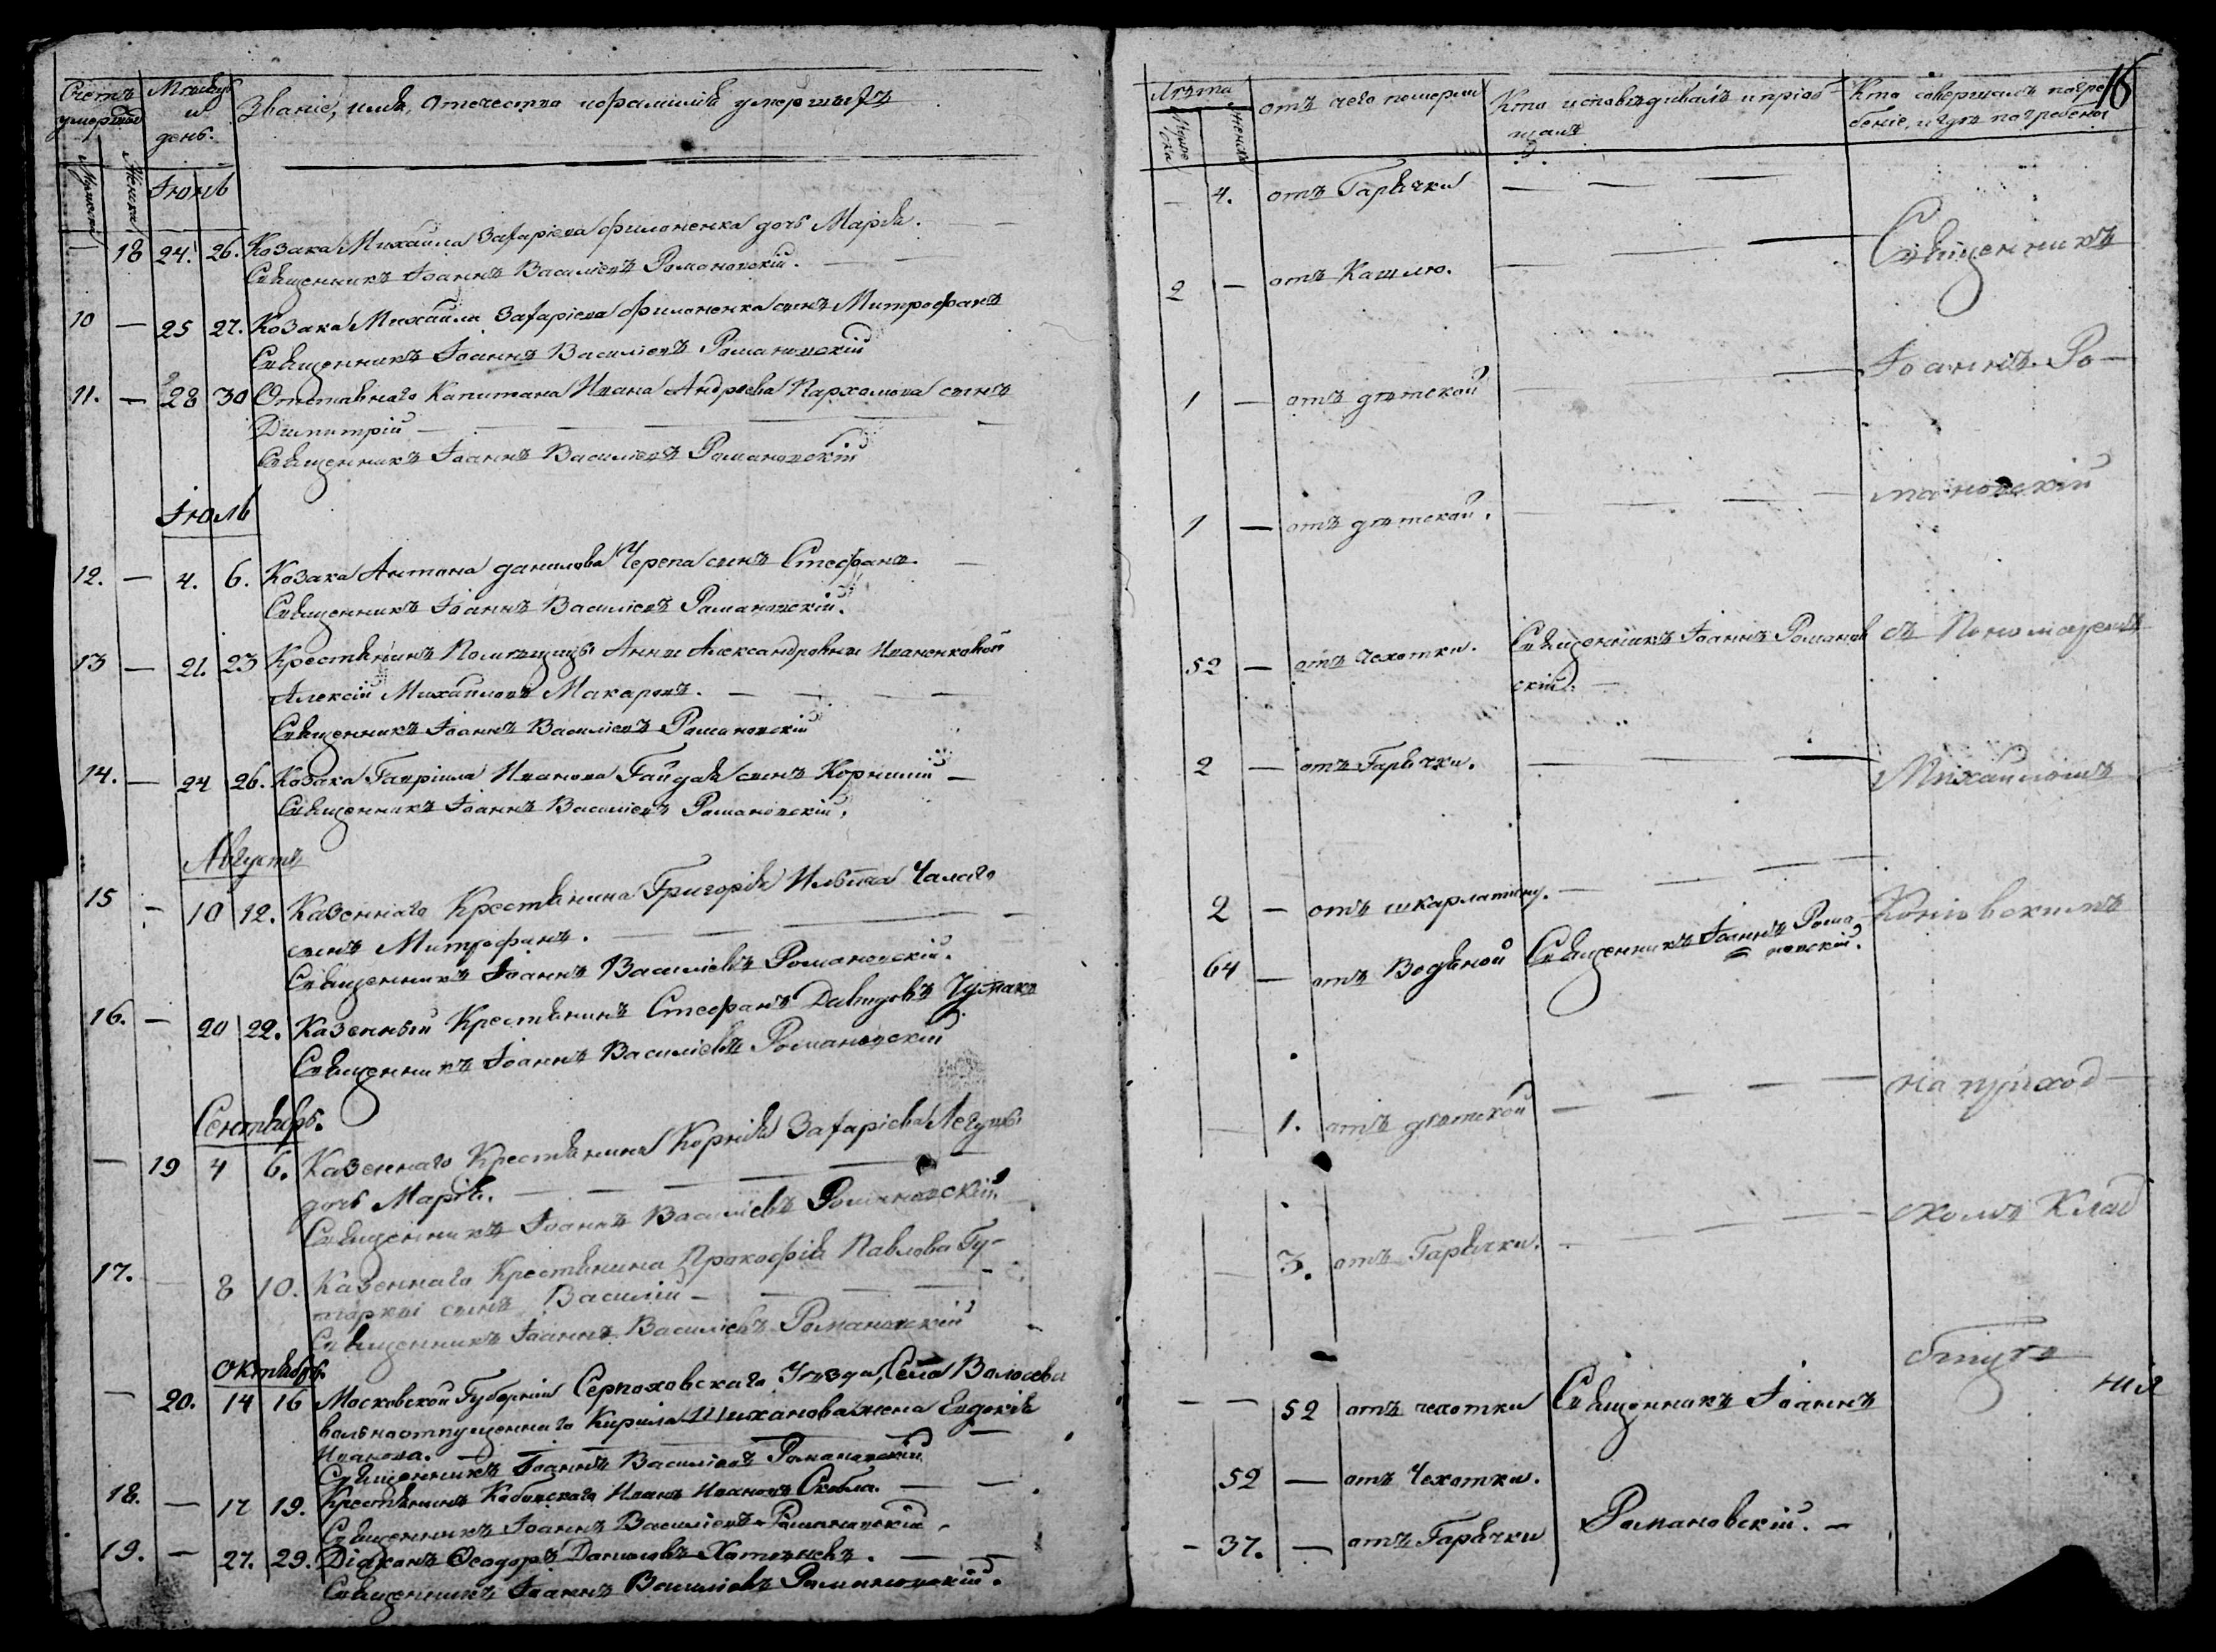 Счетъ умершихъ
Мѣсяцъ и день.
Званіе, имя, отечество и фамилія умершихъ
Мужска
Женска
Іюнь
— 18 24. 26. Козака Михаила Захаріева Филоненка дочь Марія.
Священникъ Іоаннъ Василіевъ Романовскій.
10 — 25 27. Козака Михаила Захаріева Филоненка сынъ Митрофанъ
Священникъ Іоаннъ Василіевъ Романовскій
11. — 28 30 Отставнаго Капитана Ивана Андреева Пархомова сынъ
Димитрій
Священникъ Іоаннъ Василіевъ Романовскій
Іюль
12. — 4. 6. Козака Антона Данилова Черепа сынъ Стефанъ.
Священникъ Іоаннъ Василіевъ Романовскій.
13 — 21. 23 Крестьянинъ Помѣщицы Анны Александровны Иваненковой
Алексій Михайловъ Макаровъ.
Священникъ Іоаннъ Василіевъ Романовскій
14. — 24 26. Козака Гавріила Иванова Гайдая сынъ Корнилій
Священникъ Іоаннъ Василіевъ Романовскій.
Августъ
15 — 10 12. Казеннаго Крестьянина Григорія Ильина Чалаго
сынъ Митрофанъ.
Священникъ Іоаннъ Василіевъ Романовскій.
16. — 20 22. Казенный Крестьянинъ Стефанъ Давидовъ Чумакъ
Священникъ Іоаннъ Василіевъ Романовскій
Сентябрь.
— 19 4 6. Казеннаго Крестьянина Корнія Захаріева
дочь Марія.
Священникъ Іоаннъ Василіевъ Романовскій.
17. — 8 10. Казеннаго Крестьянина Прокофія Павлова
сынъ Василій
Священникъ Іоаннъ Василіевъ Романовскій
Октябрь.
— 20. 14 16 Московской Губерніи Серпоховскаго Уѣзда, Села
вольноотпущеннаго Кирила жена Евдокія
Иванова.
Священникъ Іоаннъ Василіевъ Романовскій
18. — 17 19. Крестьянинъ Иванъ Ивановъ Скобла.
Священникъ Іоаннъ Василіевъ Романовскій
19. — 27. 29. Діаконъ Ѳеодоръ Даниловъ
Священникъ Іоаннъ Василіевъ Романовскій.
16
Лѣта
отъ чего померли
Кто исповѣдивалъ и пріоб-
щалъ
Кто совершалъ погре-
беніе, и гдѣ погребены
Мужеска
Женска
— 4. отъ Гарячки
Священникъ
2 — отъ Кашлю.
Іоаннъ Ро-
1 — отъ дѣтской
мановскій
1 — отъ дѣтской.
52 — отъ чехотки. Священникъ Іоаннъ Романов съ Пономаремъ
скій.
2 — отъ Гарячки.
Михайломъ
2 — отъ шкарлатины.
64 — отъ Водяной Священникъ Іоаннъ Рома
новскій.
— 1. отъ дѣтской
на приход-
— 3. отъ Гарячки.
скомъ Клад
бищѣ
— 52 отъ чехотки Священникъ Іоаннъ
52 — отъ Чехотки.
Романовскій.
37. — отъ Гарячки